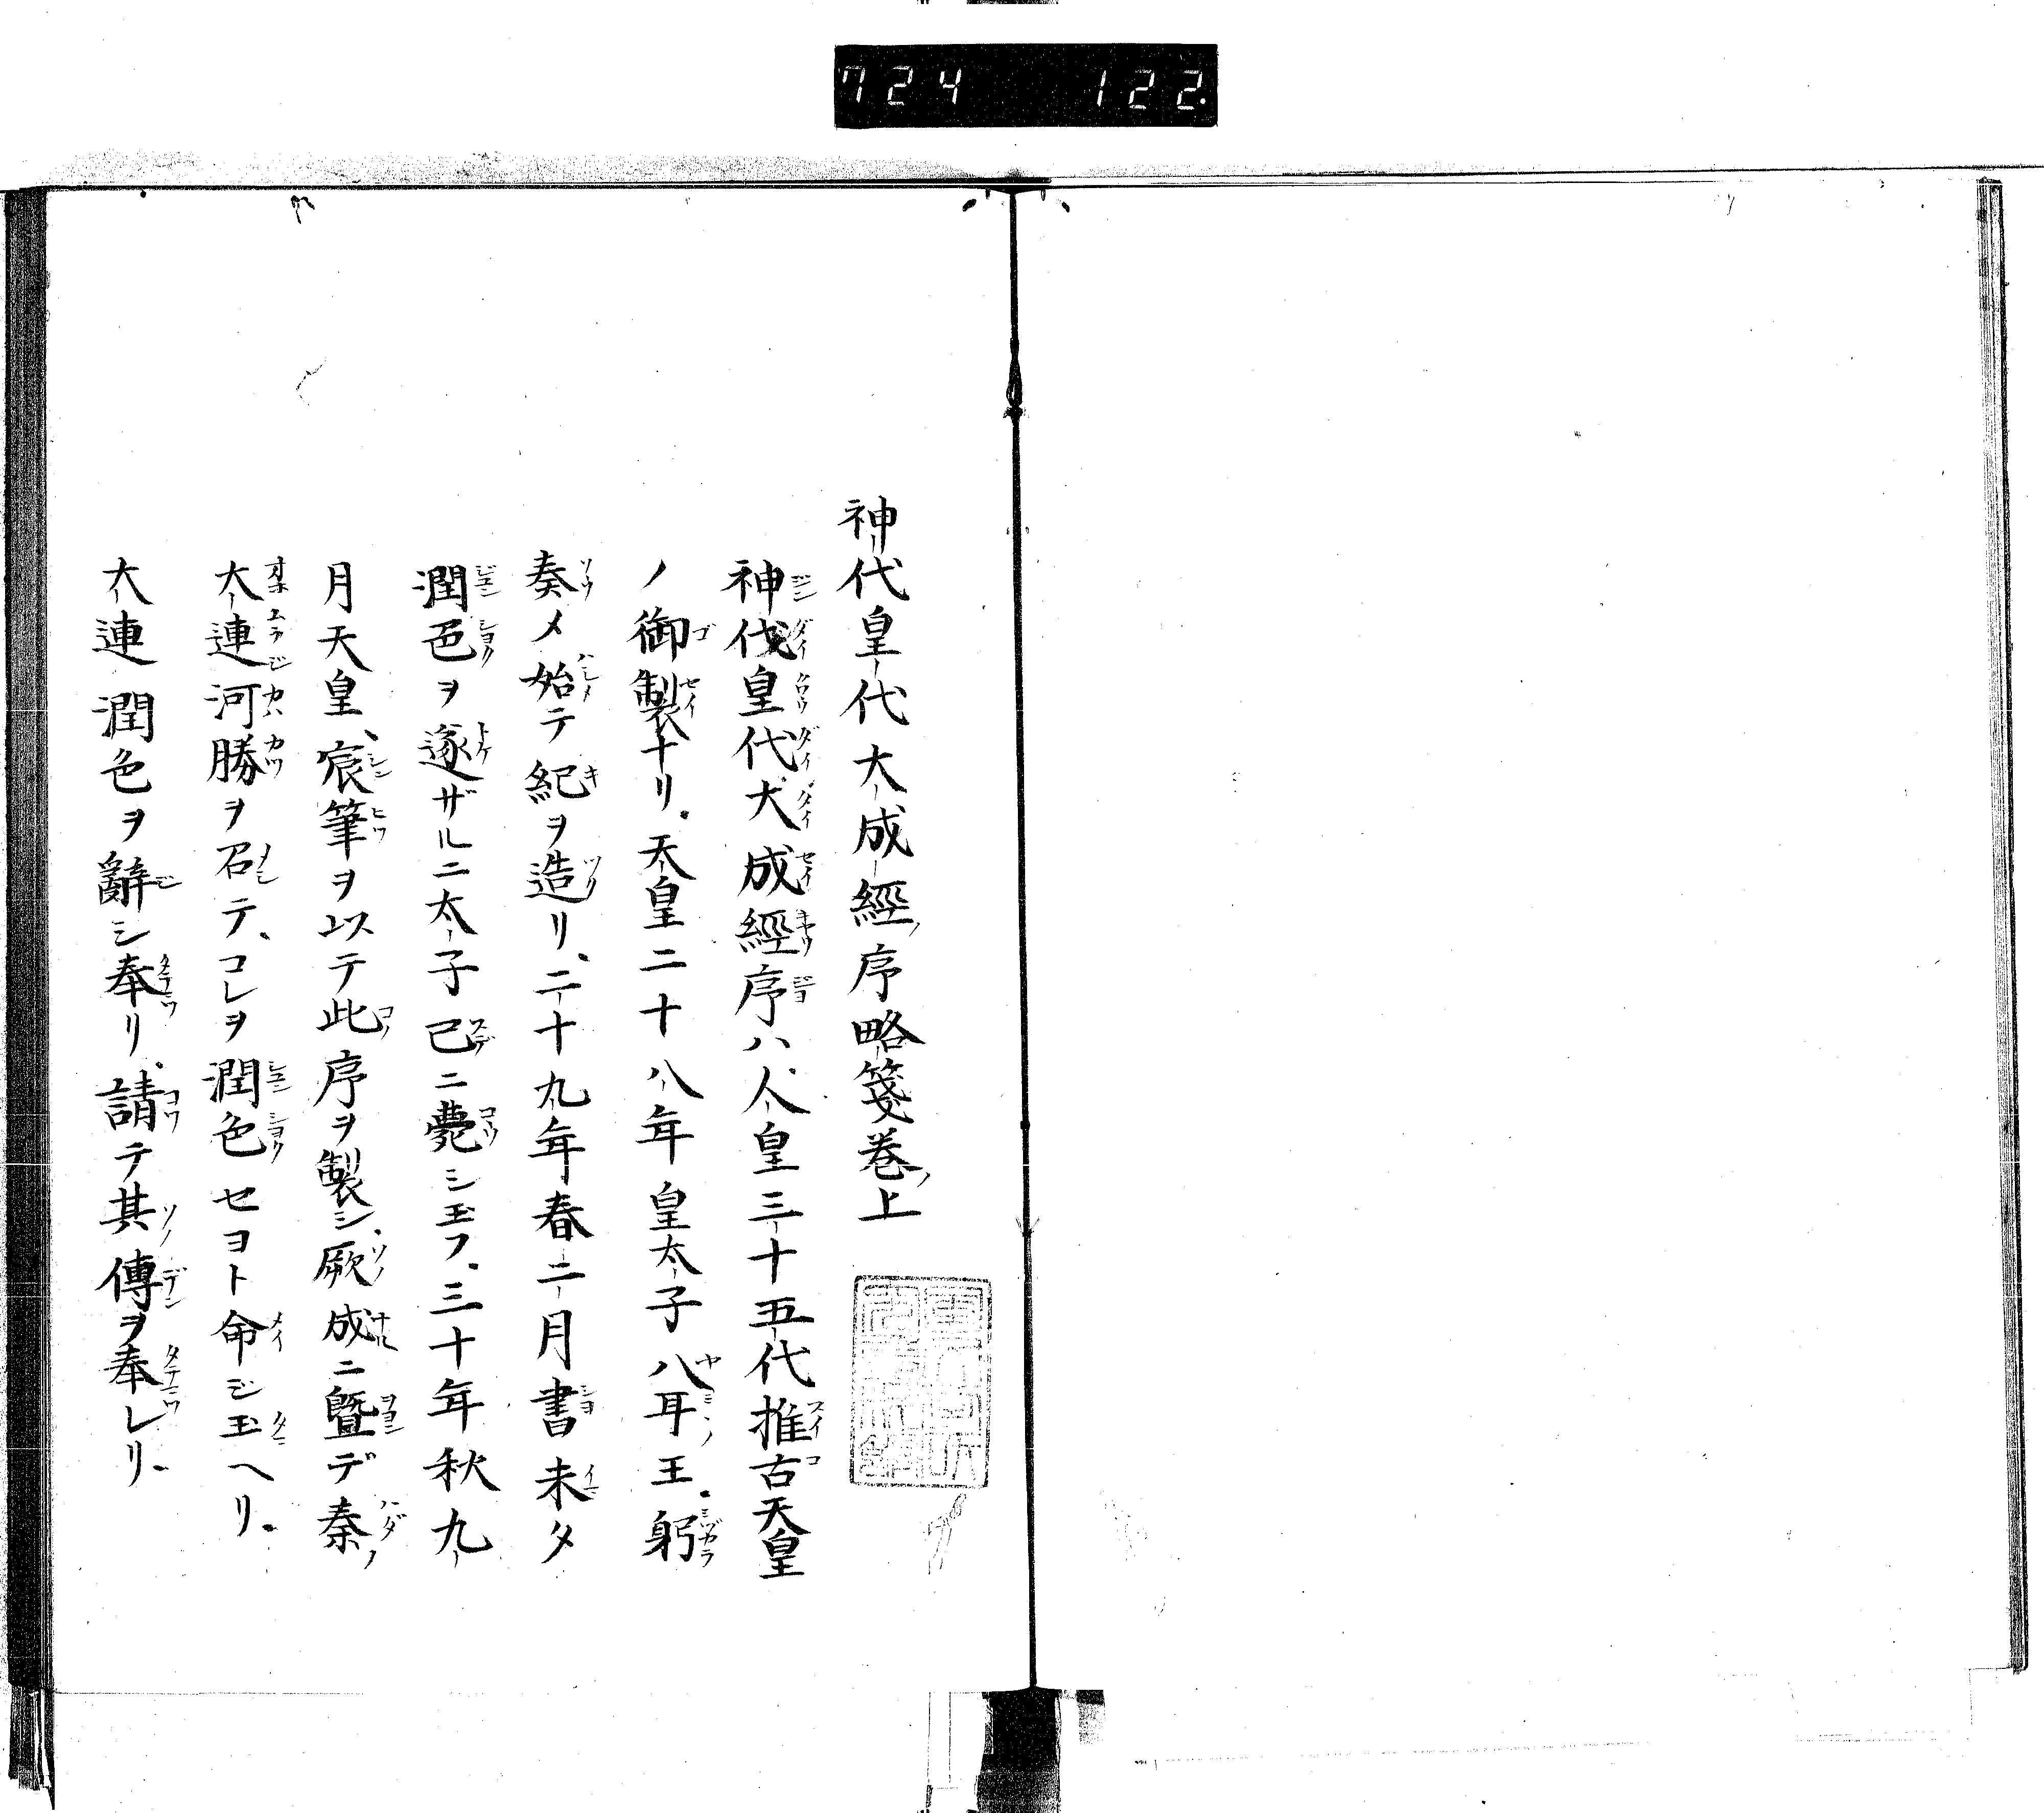 724 122
神代皇代大成經序略箋卷上
神代皇代大成經序ハ、人皇三十五代推古天皇
ノ御製ナリ。天皇二十八年皇太子八耳王。躬
奏メ始テ紀ヲ造リ、二十九年春二月書未タ
潤色ヲ遂ザルニ太子已ニ薨シ玉フ、三十年秋九
月天皇、宸筆ヲ以テ此序ヲ製シ、厥成ニ曁デ秦
大連河勝ヲ召テ、コレヲ潤色セヨト命ジ玉ヘリ。
大連潤色ヲ辭シ奉リ、請テ其傳ヲ奉レリ。